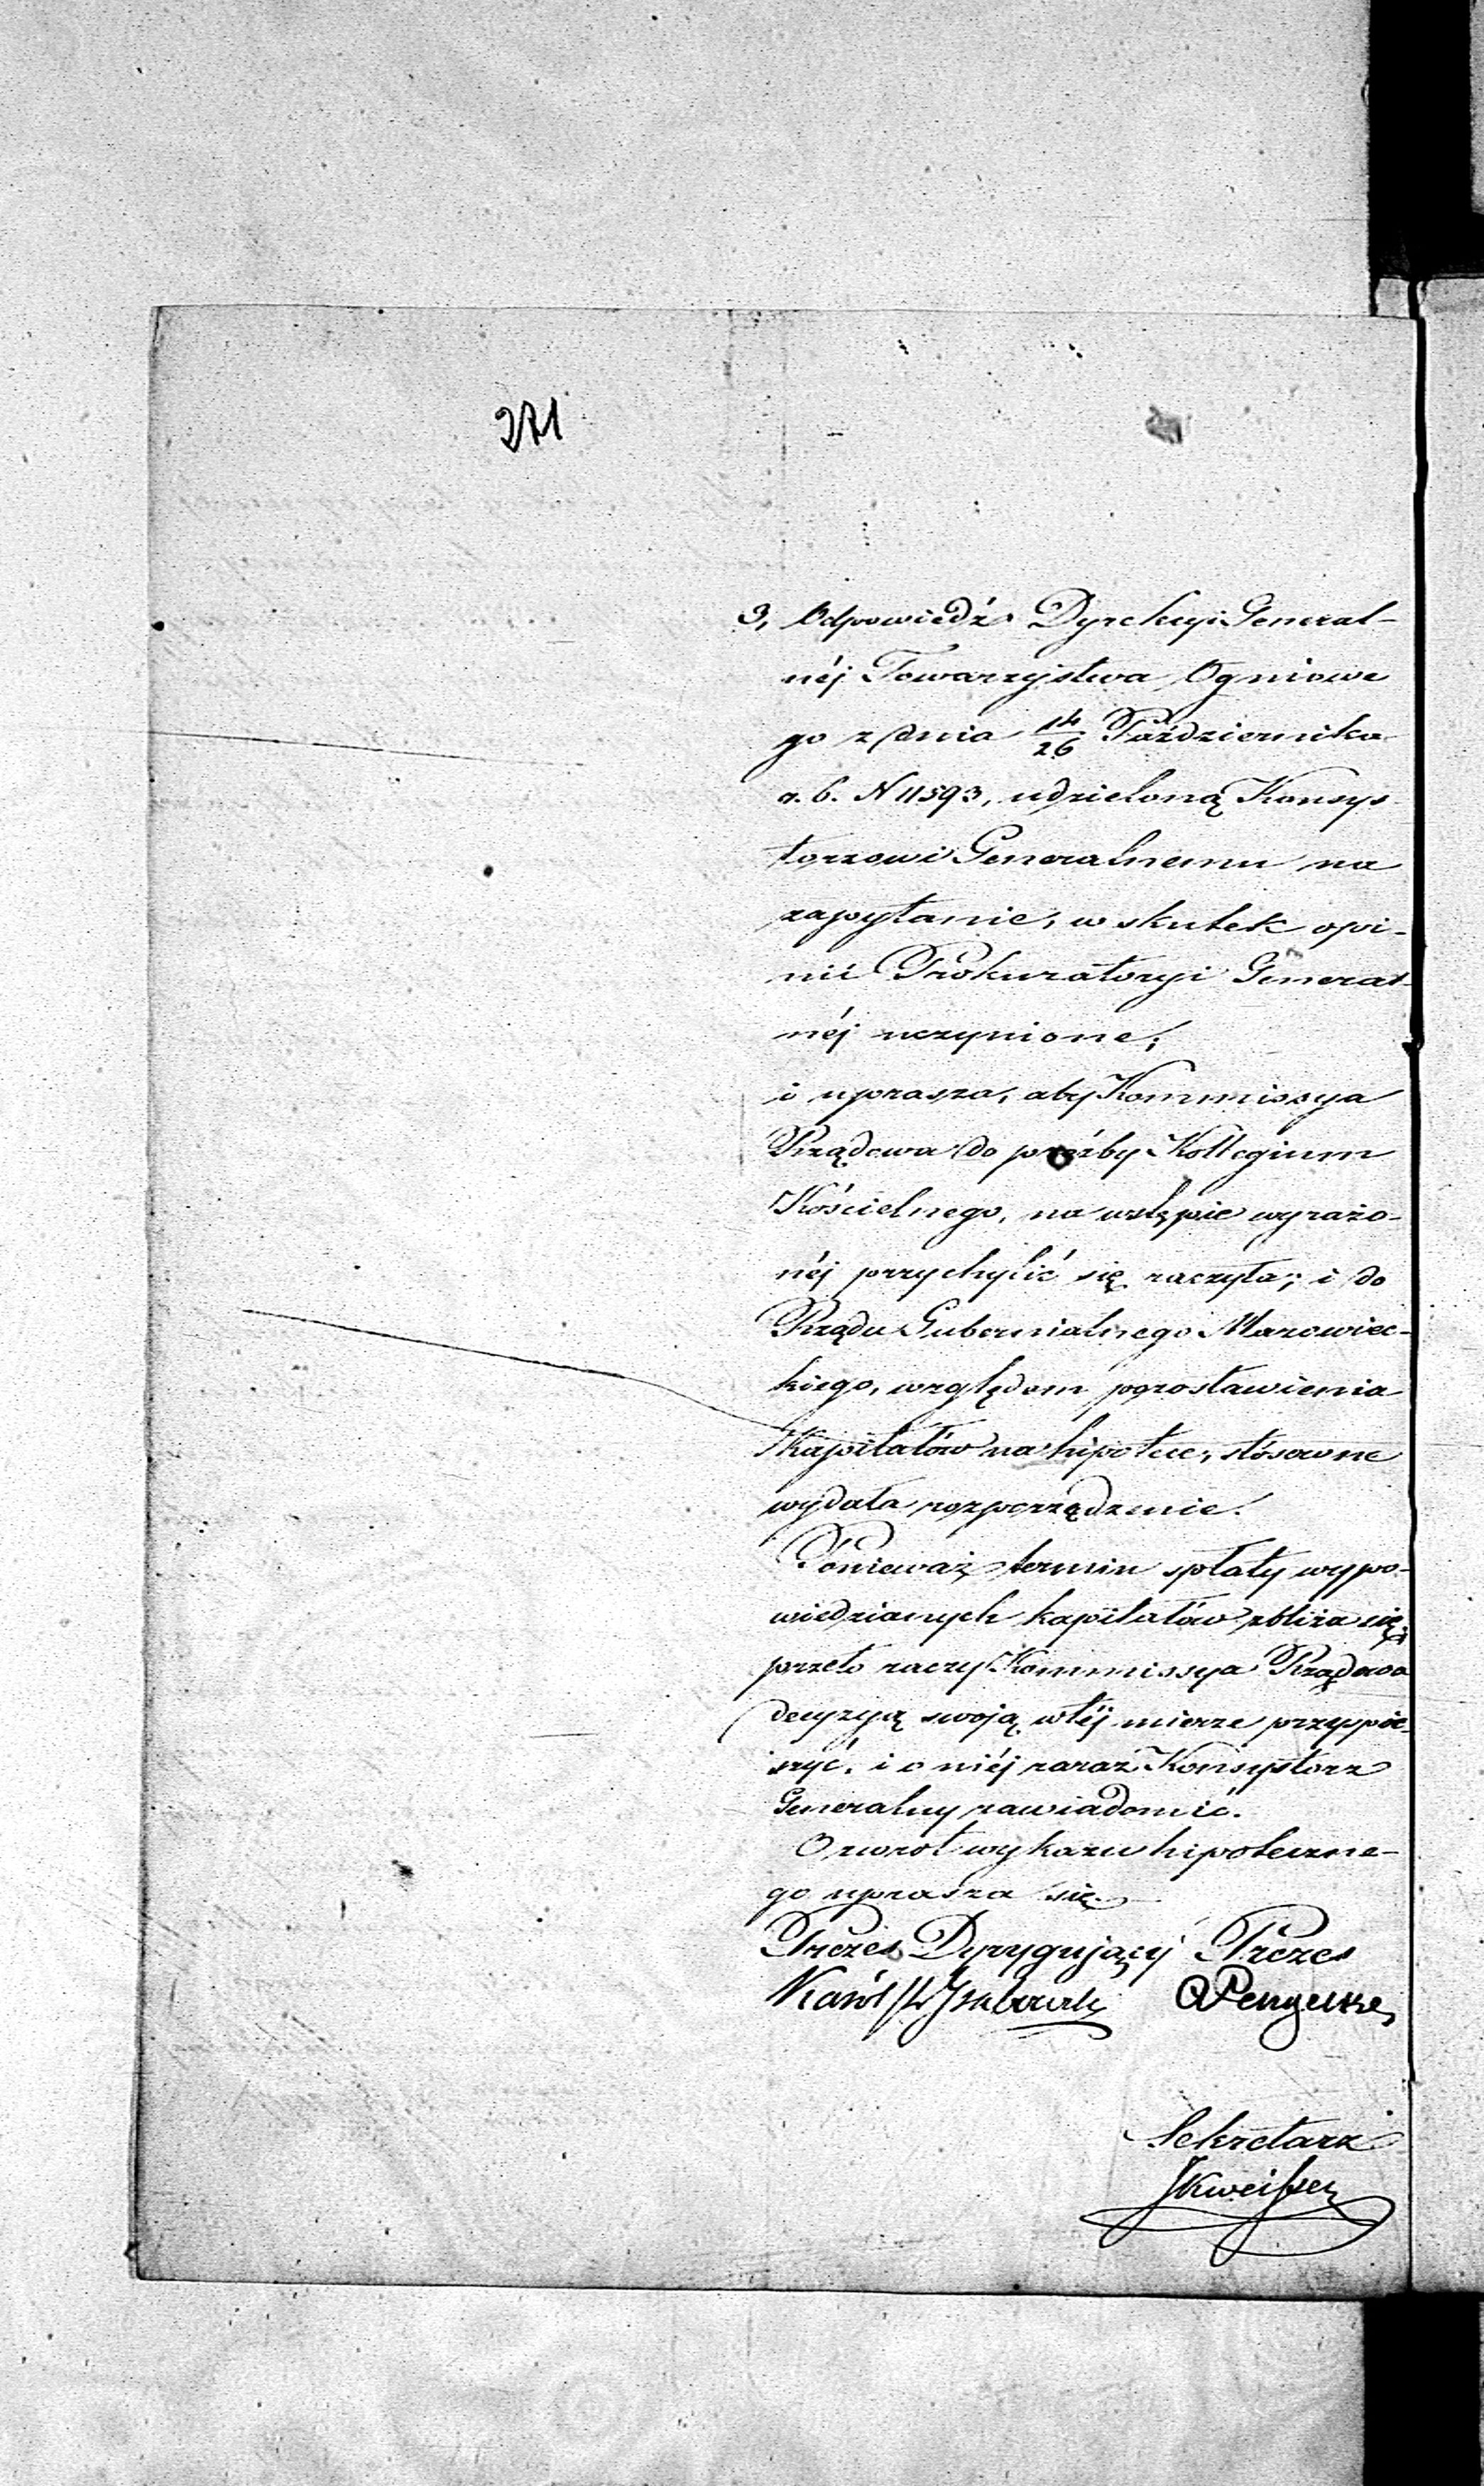 271
3, Odpowiedź Dyrekcyi General-
néj Towarzystwa Ogniowe
go z dnia 14/26 Października
r. b. N 11593, udzieloną Konsys
torzowi Generalnemu na
zapytanie, w skutek opi-
nii Prokuratoryi General-
néj uczynione;
i uprasza, aby Kommissya
Rządowa do prośby Kollegium
Kościelnego, na wstępie wyrażo-
néj przychylić się raczyła; i do
Rządu Gubernialnego Mazowiec-
kiego, względem pozostawienia
Kapitałów na hipotece, stósowne
wydała rozporządzenie.
Ponieważ termin spłaty wypo-
wiedzianych kapitałów zbliża się,
przeto raczy Kommissya Rządowa
decyzyą swoją w téj mierze przyspie-
szyć, i o niéj zaraz Konsystorz
Generalny zawiadomić.
O zwrot wykazu hipoteczne-
go uprasza się.
Prezes Dyrygujący Prezes
Karól
Sekretarz